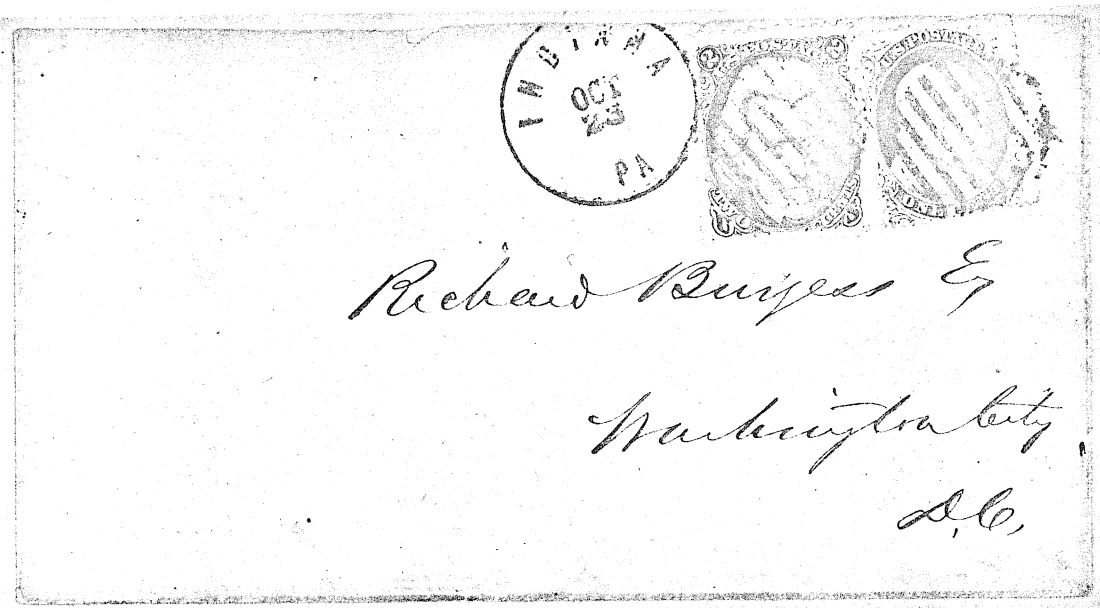 INDIANA
OCT
23
PA
2 U.S. POSTAGE 2
U.S. POSTAGE
ONE
Richard Burgess Es
Washington City
D.C.